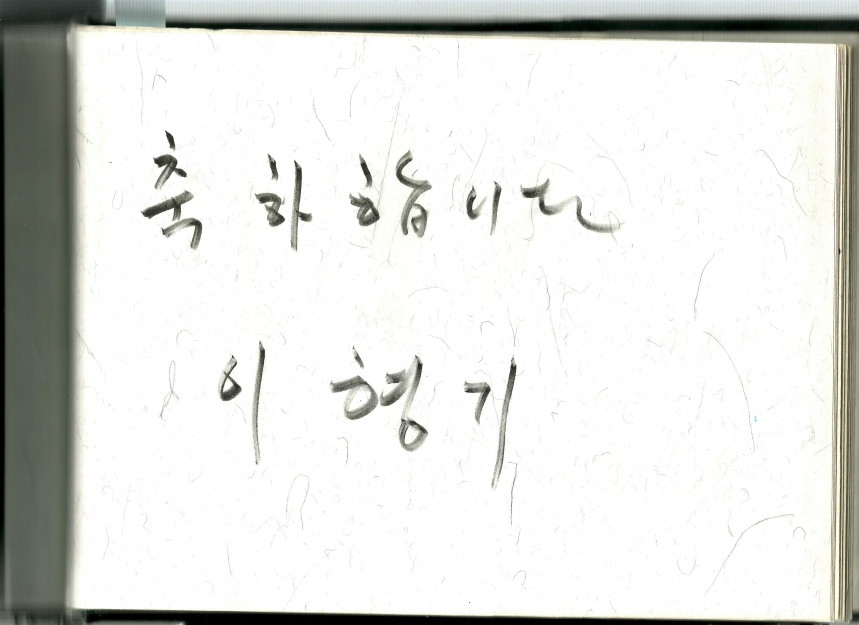 축하합니다
이형기